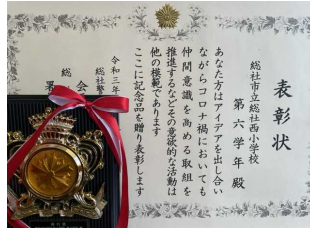 表彰状
総社市立総社西小学校
第六学年殿
あなた方はアイデアを出し合い
ながらコロナ禍においても
仲間意識を高める取組を
推進するなどその意欲的な活動は
他の模範であります
ここに記念品を贈り表彰します
令和三年
総社警
会
総
署